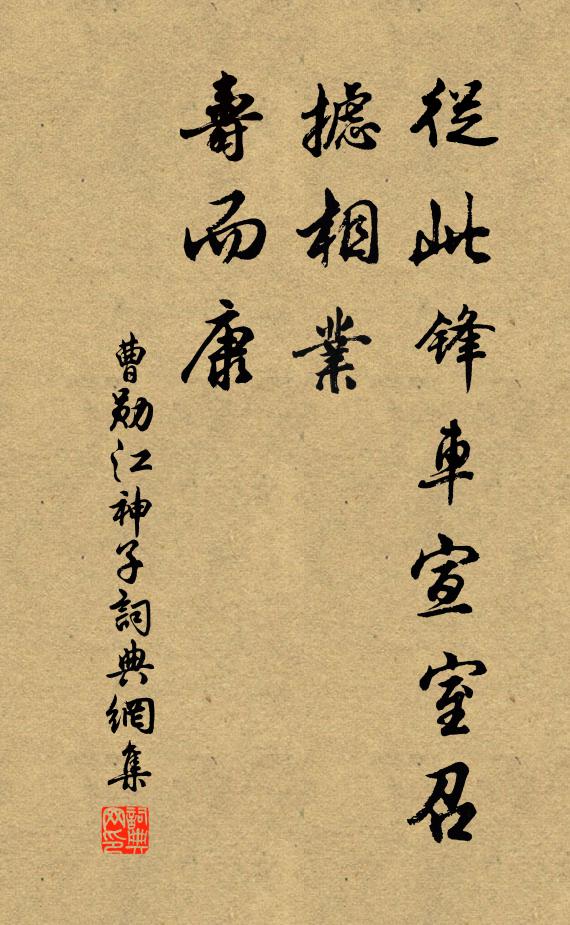 從此鋒車宣室召
攄相業
壽而康
曹勛江神子詞典網集
詞典网印